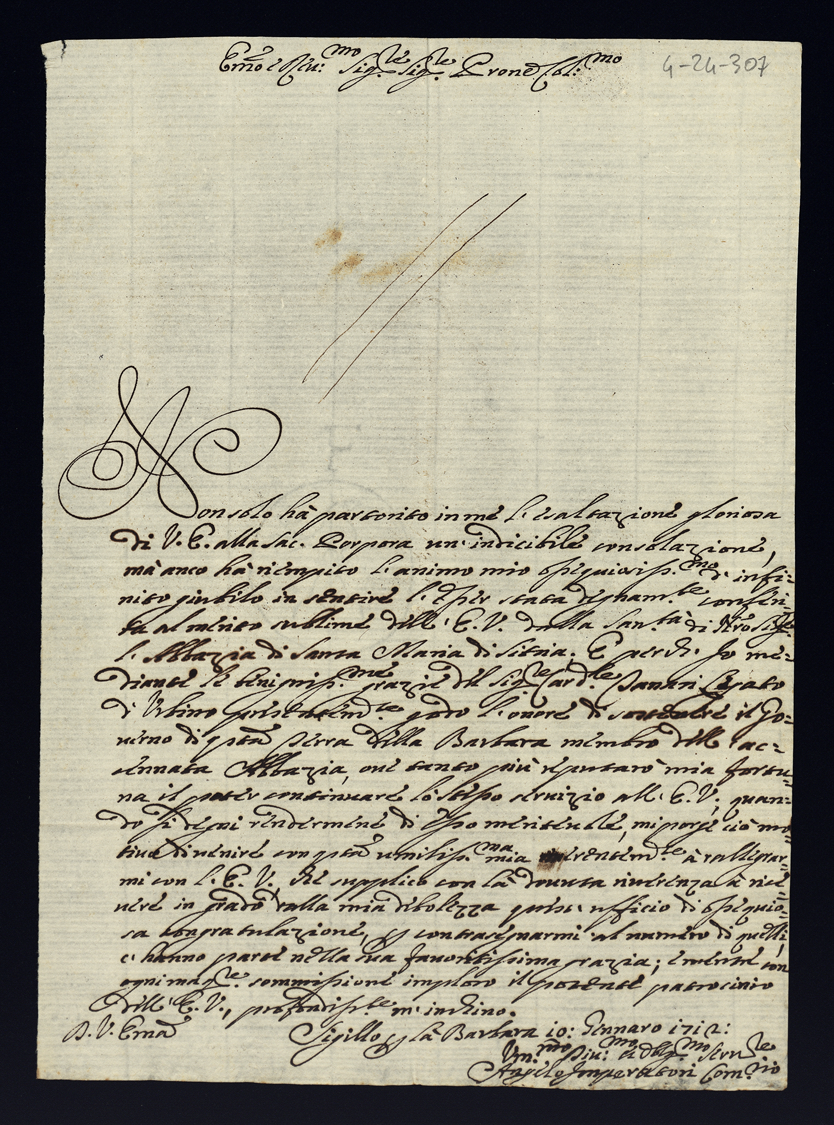 Emo e Reu:mo Sigre Sigre Prone Col:mo
4-24-307
Non solo hà partorito in me l'esaltazione gloriosa
di V. E. alla Sac. Porpora un' indicibile consolazione,
mà anco hà riempito l'animo mio ossequiosiss.mo d' infi=
nito giubilo in sentire l'esser stata degnam.te conferi=
ta al merito sublime dell' E. V. dalla San.tà di Nro Sigre
l'Abbazia di Santa Maria di Sitria. E perche Io me=
diante le benigniss.me grazie del Sigre Card.le Legato
di Urbino presentem.te godo l'onore di sostenere il Go=
uerno di qsta Terra della Barbara membro dell' ac=
cennata Abbazia, oue tanto più riputarò mia fortu=
na il poter continuare lo stesso seruizio all' E. V., quan=
do si degni rendermene di esso meriteuole, mi porge ciò mo=
tiuo di uenire con qsta umiliss.ma mia à rallegrar=
mi con l' E. V., che supplico con la douuta riuerenza à rice=
uere in grado dalla mia debolezza quest' ufficio di ossequio=
sa congratulazione, e contrasegnarmi al numero di quelli,
c' hanno parte nella sua fauoritissima grazia; e mentre con
ogni magre sommissione imploro il potente patrocinio
dell' E. V., profondiss.te m' inchino.
D. V. Ema
Sigillo p la Barbara 10: Gennaro 1712:
Um.mo Diu:mo ed Obbg.mo Serure
Angelo Imperatori Com.rio